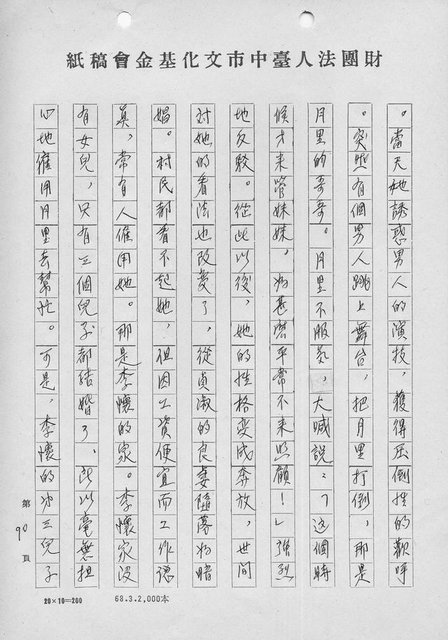 財團法人臺中市文化基金會稿紙
。當天她誘惑男人的演技，獲得压倒性的歡呼
。突然有個男人跳上舞台，把月里打倒，那是
月里的哥哥。月里不服氣，大喊説：「這個時
候才來管妹妹，为甚麽平常不來照顧！」強烈
地反駁。從此以後，她的性格变成奔放，世间
对她的看法也改変了，從貞淑的良妻墮落为暗
娼。村民都看不起她，但因工資便宜而工作認
真，常有人催用她。那是李懷的家。李懷家沒
有女兒，只有三個兒子都結婚了，所以毫無担
心地催用月里去幫忙。可是，李懷的小三兒子
第90頁
20×10=200
68.3.2,000本